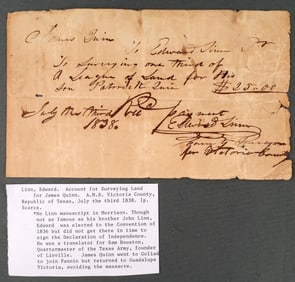 James Quin
To Edward Linn Dr
To Surveying one third of
A League of Land for his
son Patrick Quin $25.00
July the third Recd payment
1838. Edward Linn
for Victoria County
Linn, Edward. Account for Surveying Land
for James Quinn. A.M.S. Victoria County,
Republic of Texas, July the third 1838. 1p.
Scarce.
*No Linn manuscript in Morrison. Though
not as famous as his brother John Linn,
Edward was elected to the Convention of
1836 but did not get there in time to
sign the Declaration of Independence.
He was a translator for Sam Houston,
Quartermaster of the Texas Army, founder
of Linnville. James Quinn went to Goliad
to join Fannin but returned to Guadalupe
Victoria, avoiding the massacre.